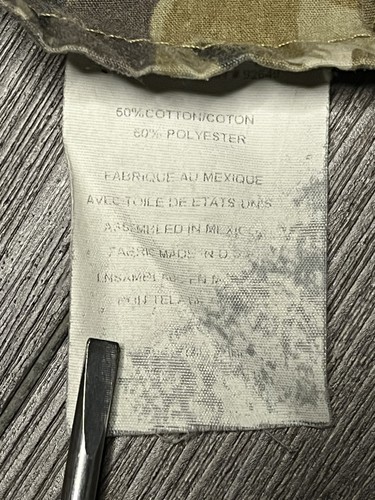 # 9264
60% COTTON/COTON
60% POLYESTER
FABRIQUE AU MEXIQUE
AVEC TOILE DE ETATS UNIS
ASSEMBLED IN MEXICO
FABRIC MADE IN U.S.
ENSAMBLADO EN
CON TELA DE